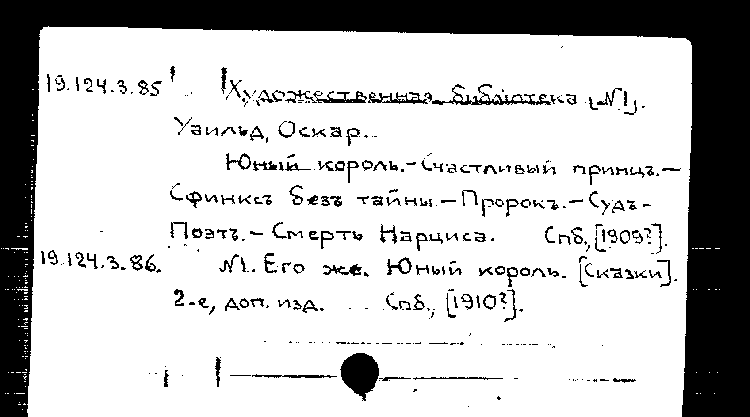 19.124.3.85 Художественная библіотека [№1].
Уаильд, Оскар.
Юный король.-Счастливый принцъ.-
Сфинксъ безъ тайны.-Пророкъ.-Судъ-
Поэтъ.-Смерть Нарциса. Спб., [1909?].
19.124.3.86. №1. Его же. Юный король. [Сказки].
2-е, доп. изд. Спб., [1910?].